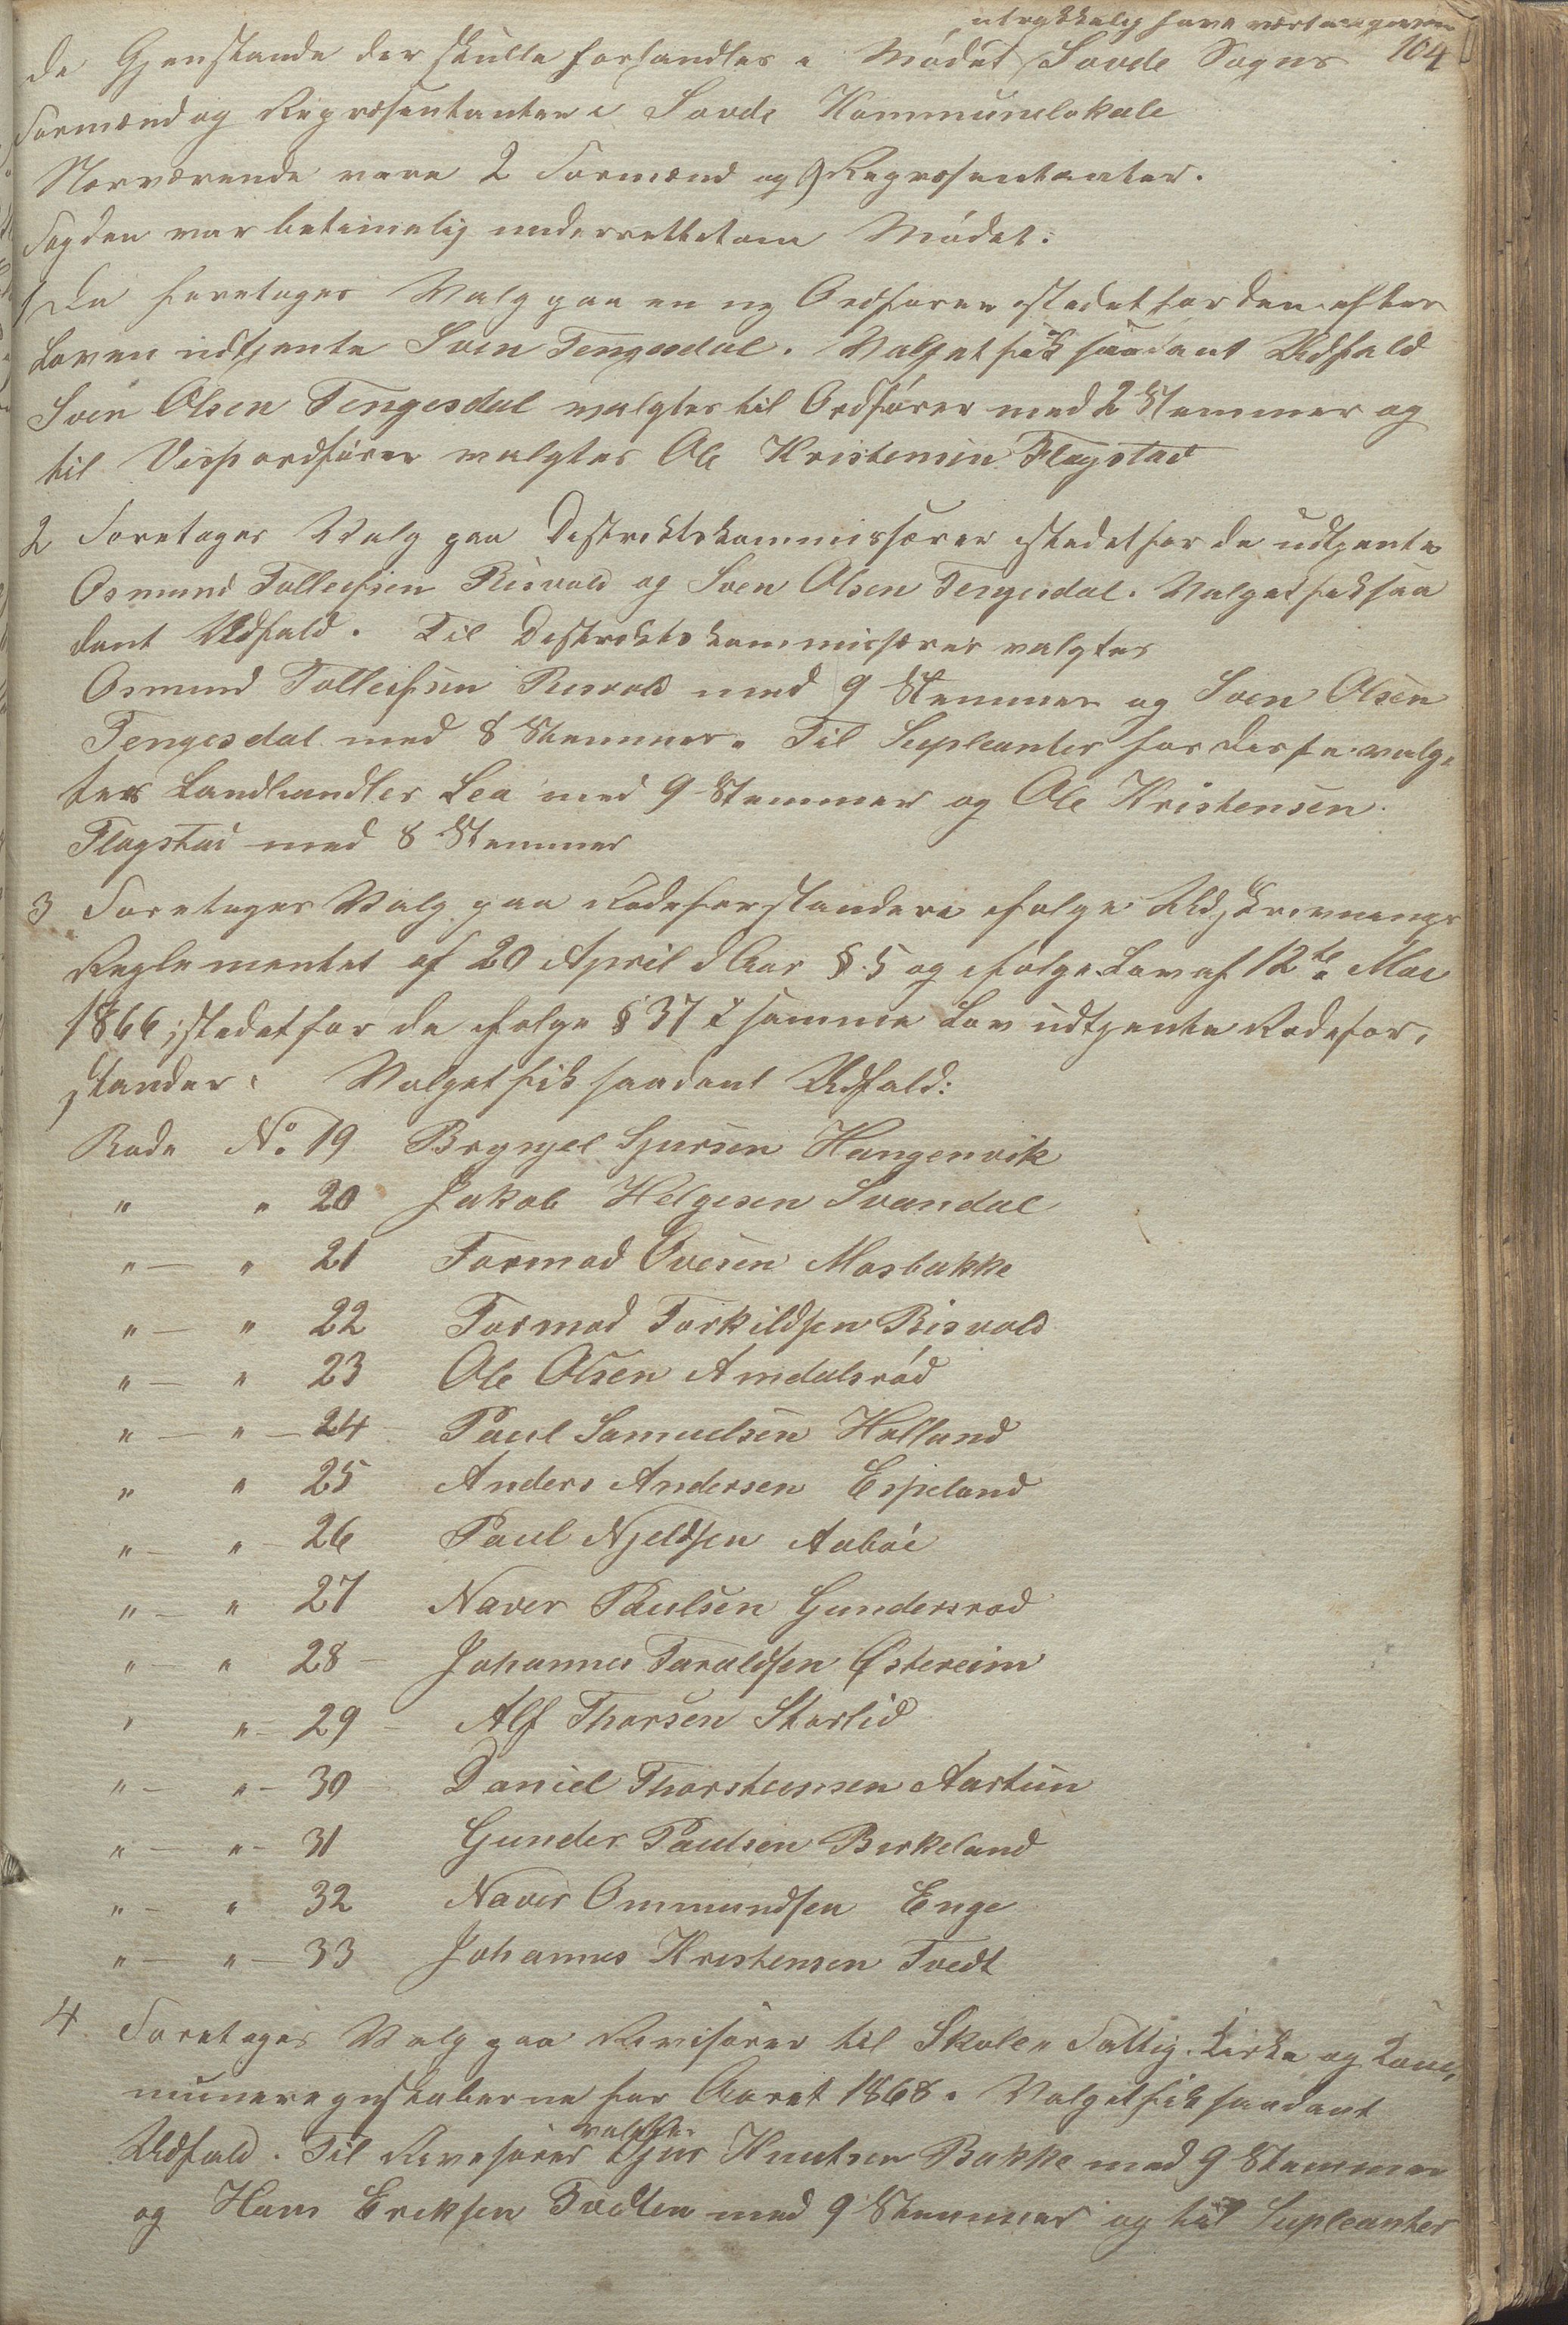 utrykkelig have vært angivne
104
de Gjenstande der skulle forhandles i Mødet Sovde Sogns
Formænd og Repræsentanter i Sovde Kommunelokale
Nærværende vare 2 Formænd og 9 Repræsentanter.
Fogden var betimelig underrettet om Mødet:
1 Da foretages Valg paa en ny Ordfører istedet for den efter
Loven udtjente Sven Tengesdal. Valget fik saadant Udfald
Sven Olsen Tengesdal valgtes til Ordfører med 2 Stemmer og
til Viseordfører valgtes Ole Kristensen Flagstad
2 Foretages Valg paa Distriktskommissærer istedet for de udtjente
Osmund Tolleifsen Risvold og Sven Olsen Tengesdal. Valget fik saa
dant Udfald. Til Distriktskommissærer valgtes
Osmund Tolleifsen Risvold med 9 Stemmer og Sven Olsen
Tengesdal med 8 Stemmer. Til Supleanter for disse valg,
tes Landhandler Lea med 9 Stemmer og Ole Kristensen
Flagstad med 8 Stemmer
3 Foretages Valg paa Rodeforstandere ifølge Udskrivnings
Reglementet af 20 April d Aar § 5 og ifølge Lov af 12te Mai
1866, istedet for de ifølge § 37 i samme Lov udtjente Rodefor,
stander: Valget fik saadant Udfald:
Rode No 19 Brynjel Sjursen Hangenvik
" " 20 Jakob Helgesen Svandal
" — " 21 Tormod Ovesen Mosbakke
" — " 22 Tormod Torkildsen Risvold
" — " 23 Ole Olsen Amdalsrød
" — " — 24 Paul Samuelsen Holland
" " 25 Anders Andersen Espeland
" — " — 26 Paul Njeldsen Aabøe
" — " 27 Naver Paulsen Gundersrød
" — " 28 — Johannes Taraldsen Østereim
" " — 29 — Alf Thorsen Storlid
" — " — 30 Daniel Thorstensen Aartun
" — " — 31 Gunder Paulsen Birkeland
" — " 32 Naver Ommundsen Enge
" — " — 33 Johannes Kristensen Tvedt
4 Foretages Valg paa Revisorer til Skole, Fattig. Kirke og Kom,
muneregnskaberne for Aaret 1868. Valget fik saadant
valgtes
Udfald. Til Revisorer Sjur Knutsen Bakke med 9 Stemmer
og Hans Eriksen Tvedten med 9 Stemmer og til Supleanter